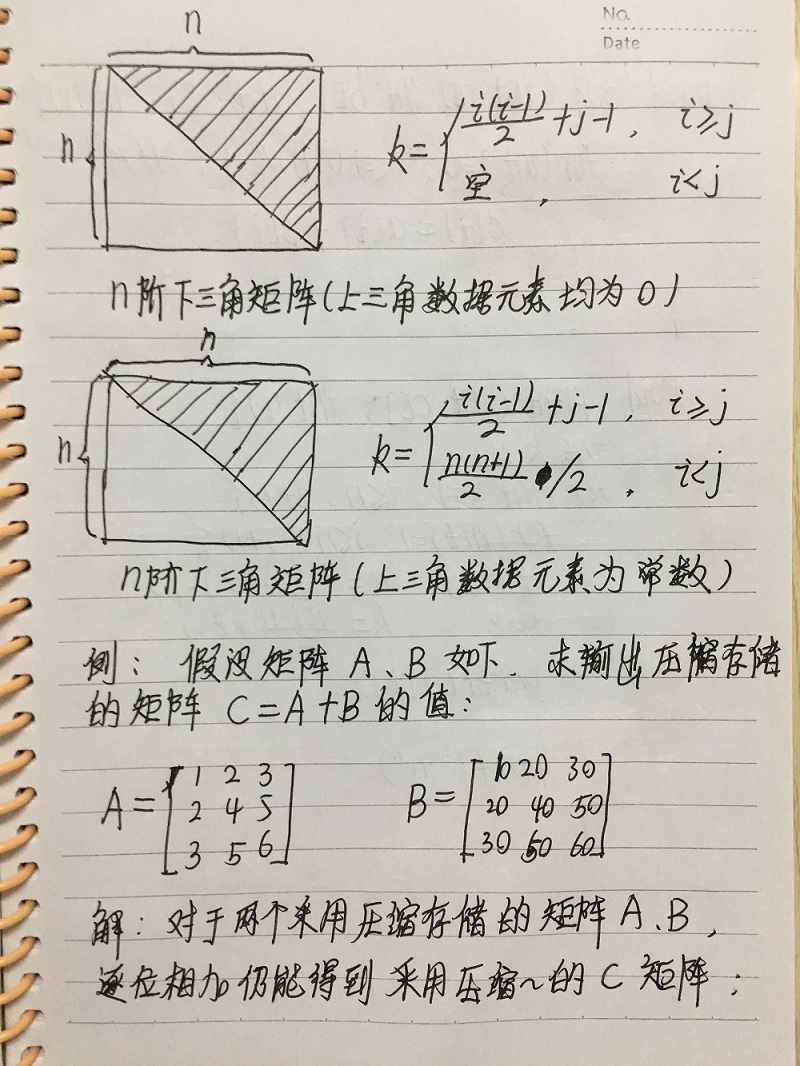 No.
Date
n
n
k = { i(i-1)/2 + j-1 , i≥j
空 , i<j
n阶下三角矩阵(上三角数据元素均为0)
n
n
k = { i(i-1)/2 + j-1 , i≥j
n(n+1)/2 /2 , i<j
n阶下三角矩阵(上三角数据元素为常数)
例: 假设矩阵 A、B 如下. 求输出压缩存储
的矩阵 C=A+B 的值:
A = [ 1 2 3 B = [ 10 20 30
2 4 5 20 40 50
3 5 6 ] 30 50 60 ]
解: 对于两个采用压缩存储的矩阵 A、B,
逐位相加仍能得到采用压缩~的 C 矩阵;